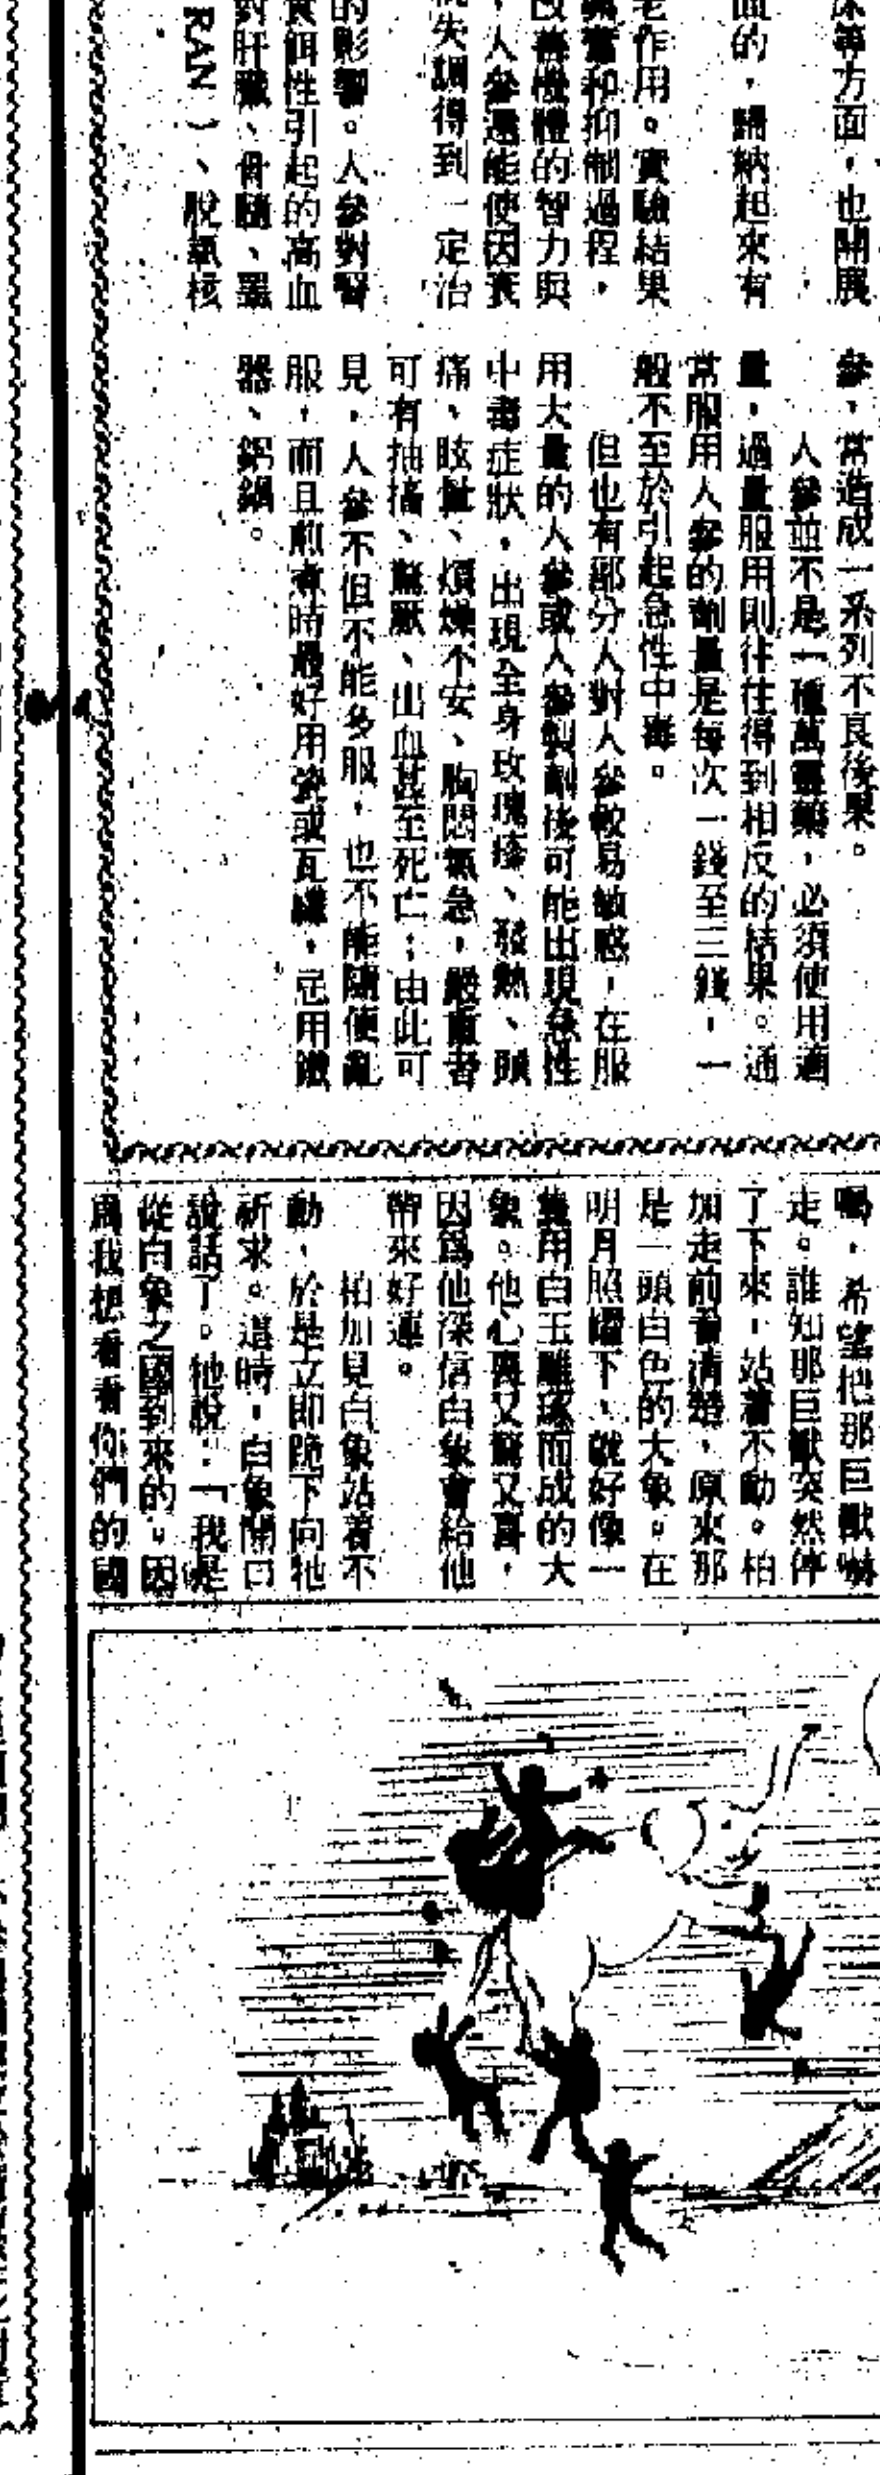 床等方面，也開展
血的，歸納起來有
老作用。實驗結果
興奮和抑制過程，
改善機體的智力與
，人參還能使因衰
失調得到一定治
的影響。人參對腎
食餌性引起的高血
對肝臟、骨髓、睪
RAN）、脫氧核
參，常造成一系列不良後果。
人參並不是一種萬靈藥，必須使用適
量，過量服用則往往得到相反的結果。通
常服用人參的劑量是每次一錢至三錢，一
般不至於引起急性中毒。
但也有部分人對人參較易敏感，在服
用大量的人參或人參製劑後可能出現急性
中毒症狀，出現全身玫瑰疹、發熱、頭
痛、眩暈、煩燥不安、胸悶氣急，嚴重者
可有抽搐、驚厥、出血甚至死亡；由此可
見，人參不但不能多服，也不能隨便亂
服，而且煎煮時最好用瓷或瓦罐，忌用鐵
器、鋁鍋。
喝，希望把那巨獸嚇
走。誰知那巨獸突然停
了下來，站著不動。柏
加走前看清楚，原來那
是一頭白色的大象。在
明月照耀下，就好像一
隻用白玉雕琢而成的大
象。他心裏又驚又喜，
因爲他深信白象會給他
帶來好運。
柏加見白象站着不
動，於是立即跪下向牠
祈求。這時，白象開口
說話了。牠說：「我是
從白象之國到來的。因
爲我想看看你們的國